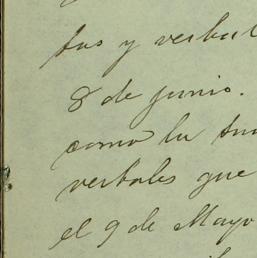 tos y verbal
8 de junio.
como la
verbales que
el 9 de Mayo